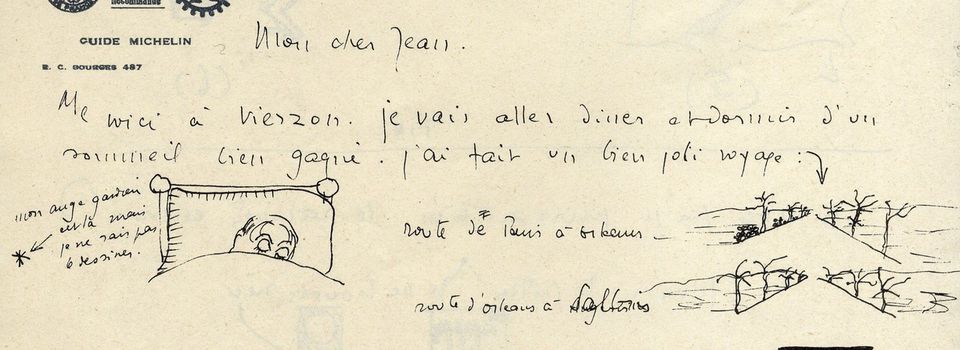 GUIDE MICHELIN
R. C. BOURGES 487
Mon cher Jean.
Me voici à Vierzon. je vais aller diner et dormir d'un
sommeil bien gagné. j'ai fait un bien joli voyage :
mon ange gardien
est là mais
je ne sais pas
le dessiner.
route de Paris à orleans
route d'orleans à